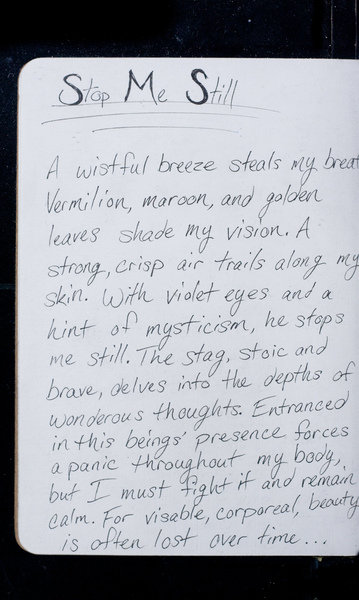 Stop Me Still
A wistful breeze steals my breat
Vermilion, maroon, and golden
leaves shade my vision. A
strong, crisp air trails along my
skin. With violet eyes and a
hint of mysticism, he stops
me still. The stag, stoic and
brave, delves into the depths of
wonderous thoughts. Entranced
in this beings' presence forces
a panic throughout my body,
but I must fight it and remain
calm. For visable, corporeal, beauty
is often lost over time...